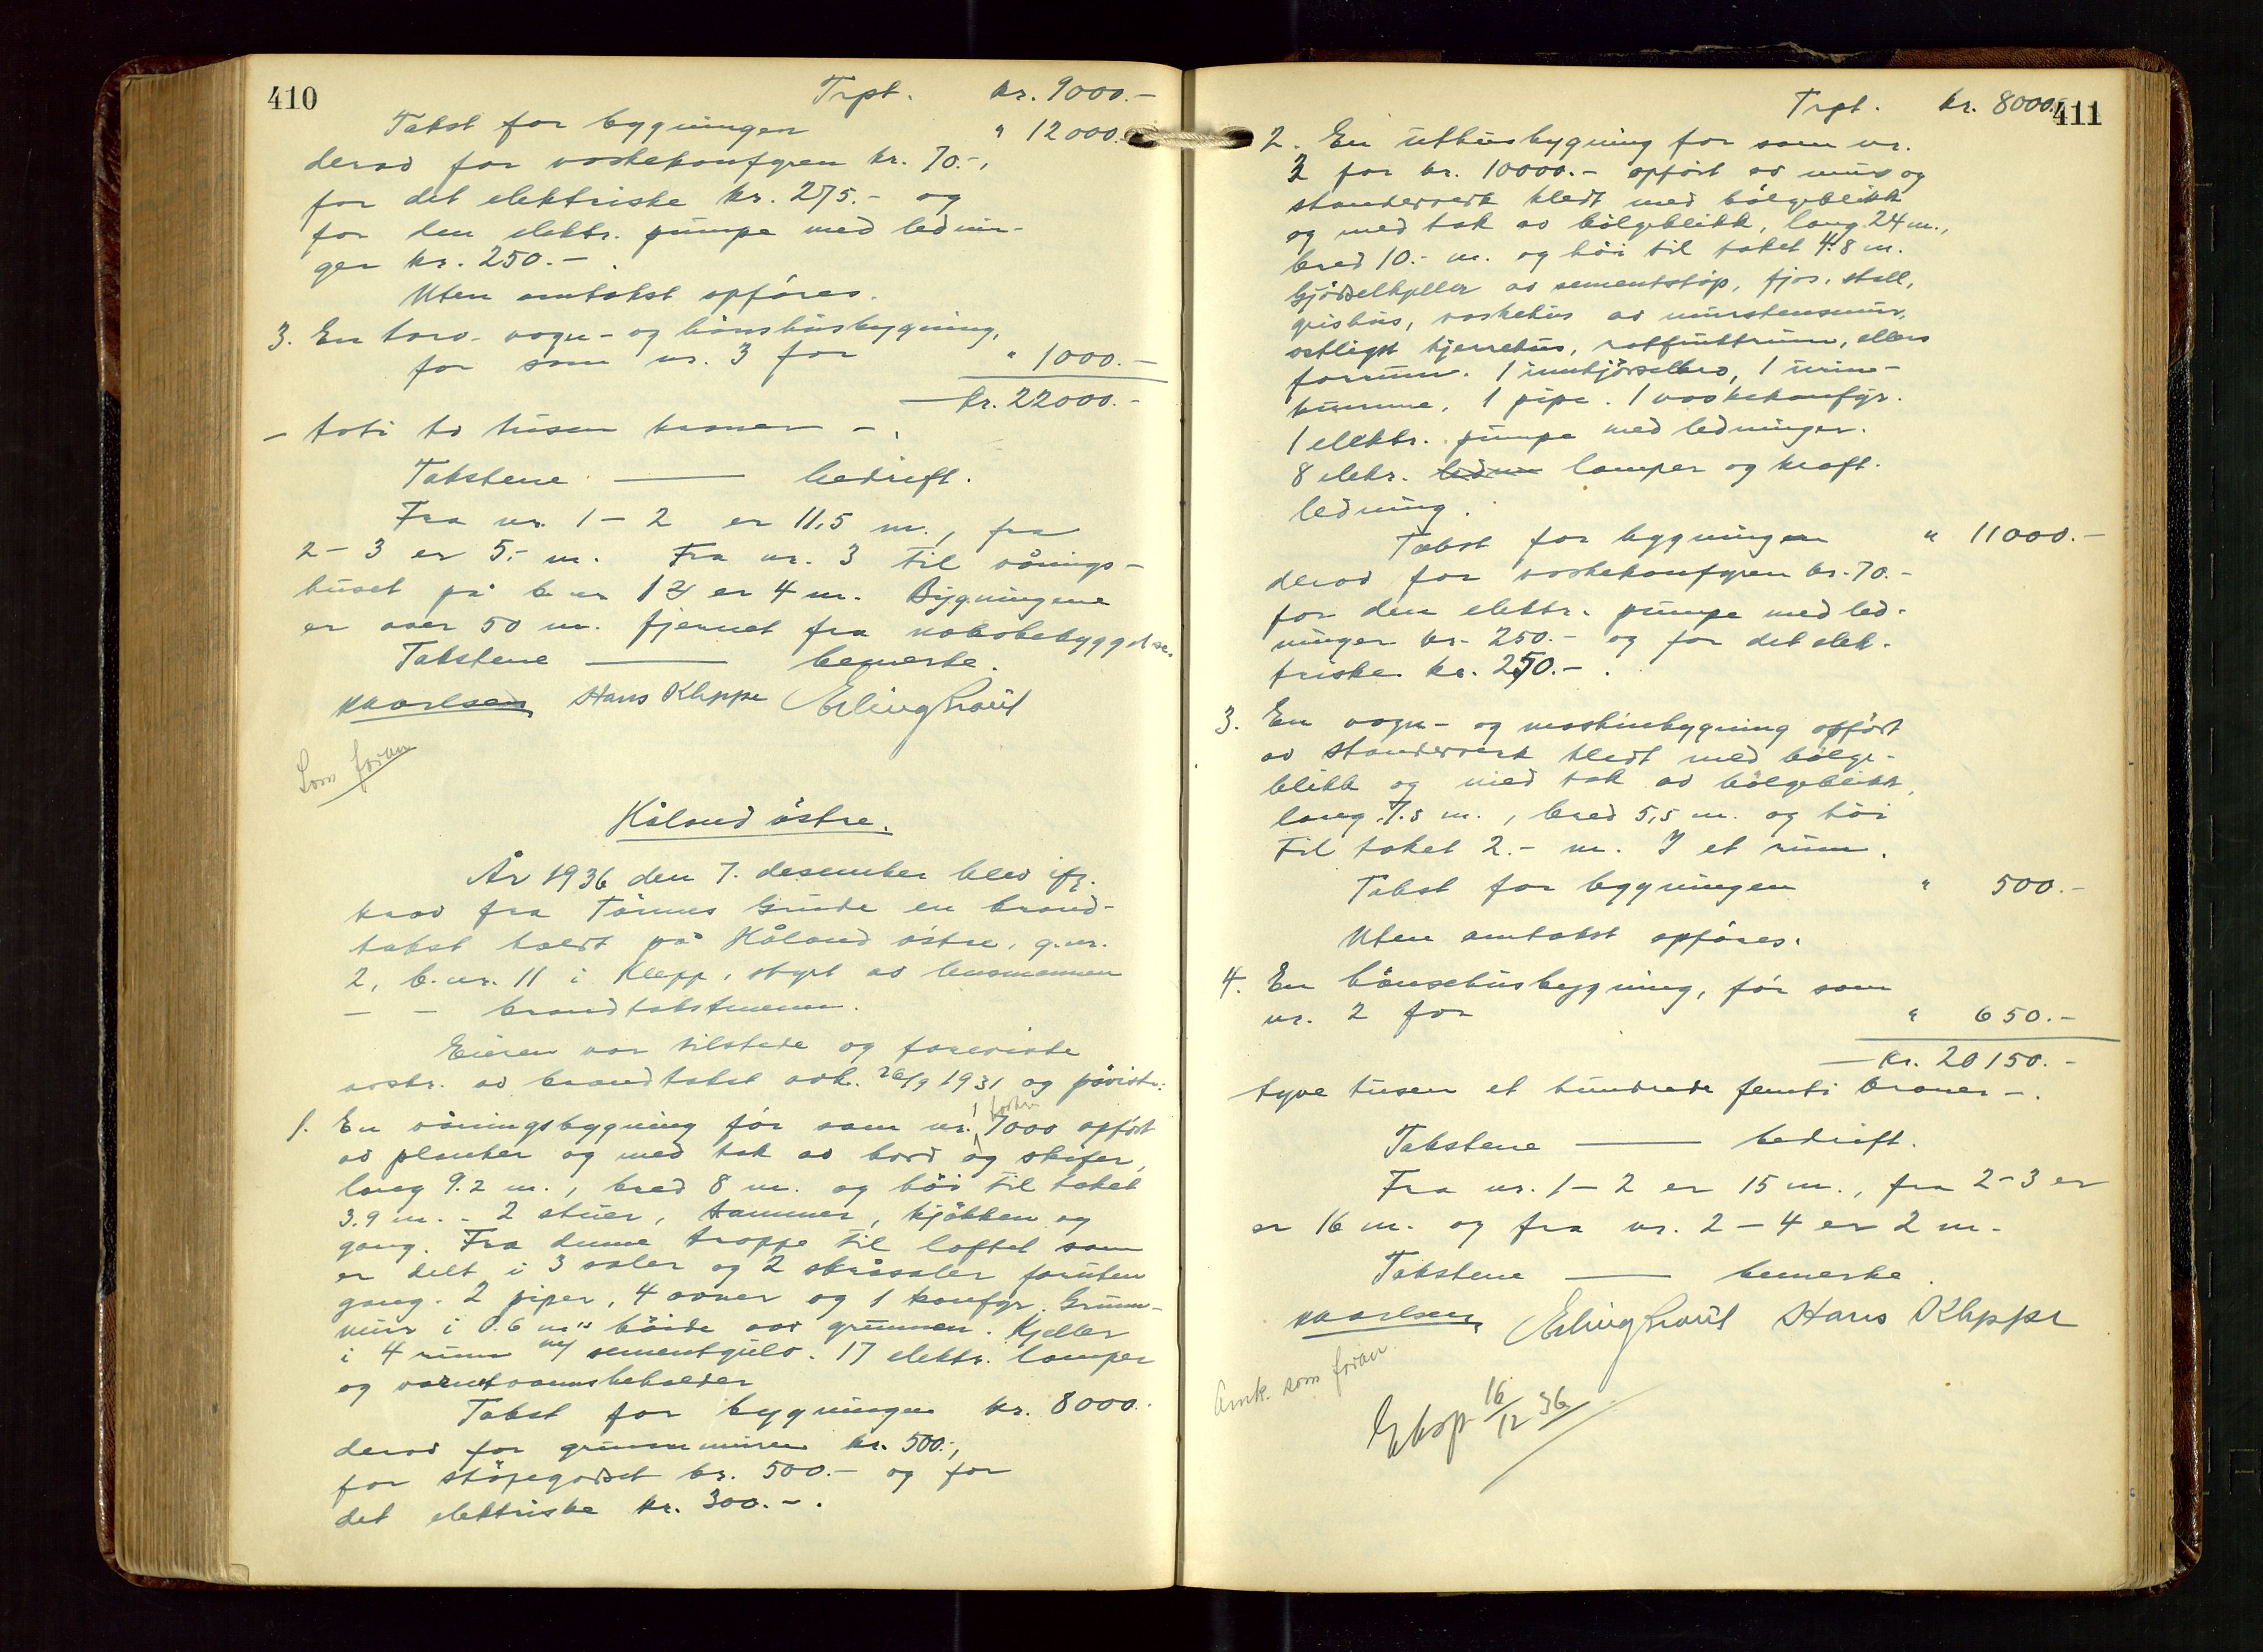 410
Trpt. kr. 9000.-
Takst for bygningen " 12000.-
derav for vaskekomfyren kr. 70.-,
for det elektriske kr. 275.- og
for den elektr. pumpe med lednin-
ger kr. 250.- .
Uten omtakst opføres.
3. En torv- vogn- og hønshusbygning,
før som nr. 3 for " 1000.-
kr. 22000.-
- toti to tusen kroner - .
Takstene —— bedrift.
Fra nr. 1 - 2 er 11,5 m., fra
2 - 3 er 5,- m. Fra nr. 3 til vånings-
huset på b. nr 12 er 4 m. Bygningene
er over 50 m. fjernet fra nabobebyggelse.
Takstene —— bemerke.
Hans Kleppe Erling Braut
Som foran
Håland østre.
År 1936 den 7. desember blev ifr.
krav fra Tønnes Grude en brand-
takst holdt på Håland østre, g.nr.
2, b.nr. 11 i Klepp, styrt av lensmannen
- - brandtakstmenn.
Eieren var tilstede og foreviste
avskr. av brandtakst avh. 26/9 1931 og påviste:
1. En våningsbygning før som nr. 1 for kr 7000 opført
av planker og med tak av bord og skifer,
lang 9.2 m., bred 8 m. og høi til taket
3.9 m. - 2 stuer, kammer, kjøkken og
gang. Fra denne trappe til loftet som
er delt i 3 saler og 2 skråsaler foruten
gang. 2 piper, 4 ovner og 1 komfyr. Grunn-
mur i 0.6 m's høide over grunnen. Kjeller
i 4 rum m/ sementgulv. 17 elektr. lamper
og varmtvannsbeholder
Takst for bygningen kr. 8000.
derav for grunnmuren kr. 500.-,
for støpegodset kr. 500.- og for
det elektriske kr. 300.- .
411
Trpt. kr. 8000.-
2. En uthusbygning før som nr.
2 for kr. 10000.- opført av mur og
standerverk kledt med bølgeblikk
og med tak av bølgeblikk, lang 24 m.,
bred 10.- m. og høi til taket 4.8 m.
Gjødselkjeller av sementstøp, fjøs, stall,
grishus, vaskehus av murstensmur,
vestligst kjerrehus, rotfruktrum, ellers
forrum. 1 innkjørselbro, 1 urin-
kumme, 1 pipe. 1 vaskekomfyr.
1 elektr. pumpe med ledninger.
8 elekr. lednin lamper og kraft-
ledning.
Takst for bygningen " 11000.-
derav for vaskekomfyren kr. 70.-
for den elektr. pumpe med led-
ninger kr. 250.- og for det elek-
triske kr. 250.- .
3. En vogn- og maskinbygning opført
av standerverk kledt med bølge-
blikk og med tak av bølgeblikk,
lang 7.5 m., bred 5,5 m. og høi
til taket 2.- m. I et rum.
Takst for bygningen " 500.-
Uten omtakst opføres.
4. En hønsehusbygning, før som
nr. 2 for " 650.-
kr. 20150.-
tyve tusen et hundrede femti kroner - .
Takstene —— bedrift.
Fra nr. 1 - 2 er 15 m., fra 2 - 3 er
er 16 m. og fra nr. 2 - 4 er 2 m.
Takstene —— bemerke.
Erling Braut Hans Kleppe
Ank. som foran.
Eksp 16/12 36